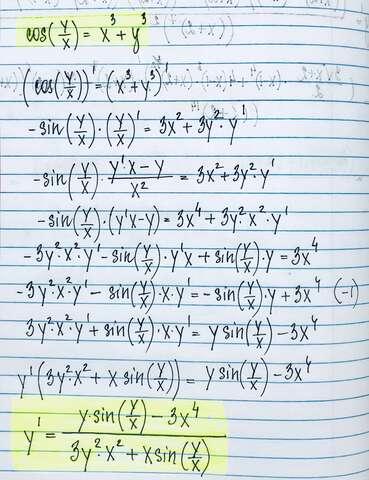 cos(y/x) = x³ + y³
(cos(y/x))' = (x³+y³)'
-sin(y/x)·(y/x)' = 3x² + 3y²·y'
-sin(y/x)·(y'·x-y)/x² = 3x²+3y²·y'
-sin(y/x)·(y'x-y) = 3x⁴ + 3y²·x²·y'
-3y²·x²·y' - sin(y/x)·y'x + sin(y/x)·y = 3x⁴
-3y²x²y' - sin(y/x)·x·y' = -sin(y/x)·y + 3x⁴ (-1)
3y²·x²·y' + sin(y/x)·x·y' = y sin(y/x) - 3x⁴
y'(3y²·x² + x sin(y/x)) = y sin(y/x) - 3x⁴
y' = (y·sin(y/x) - 3x⁴)/(3y²·x² + x sin(y/x))